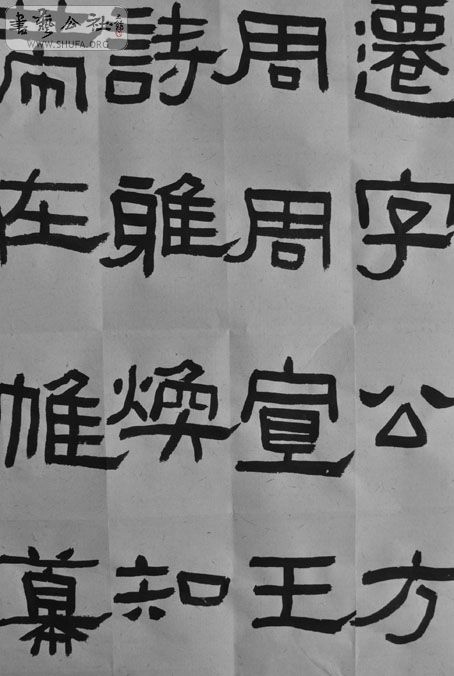 書藝公社
WWW.SHUFA.ORG
遷字公方
周周宣王
詩雅煥知
在帷幕